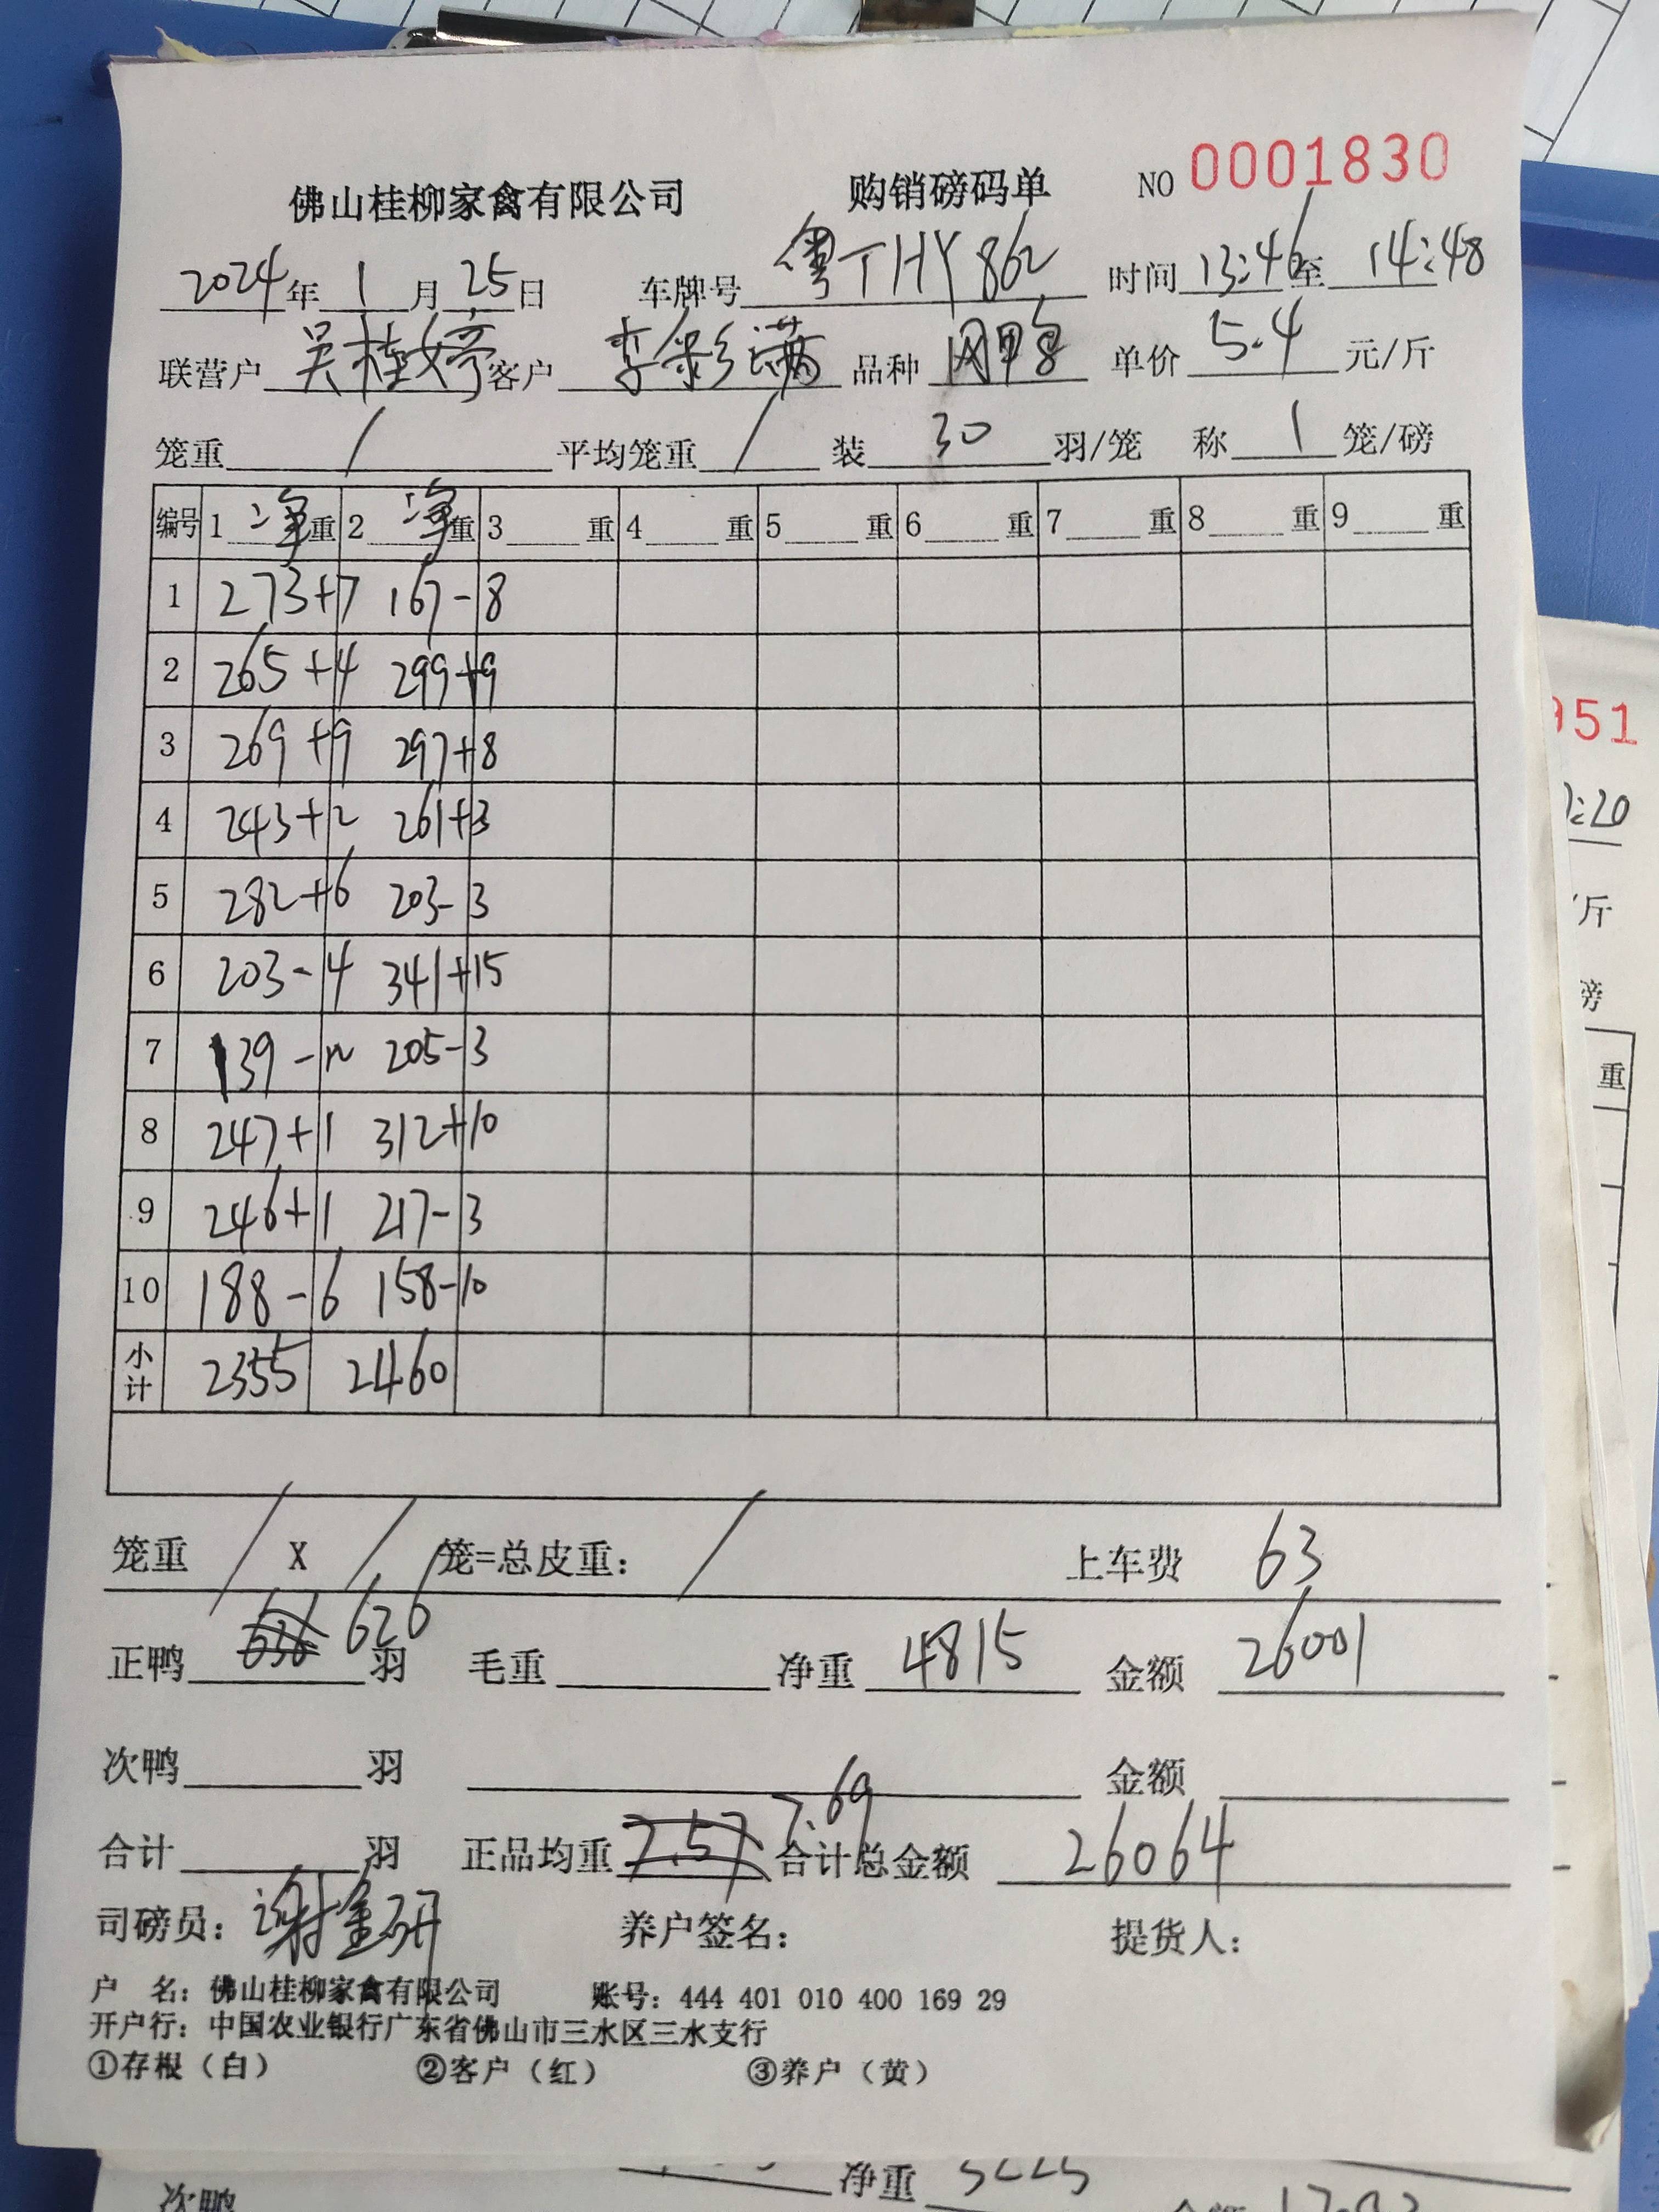 佛山桂柳家禽有限公司 购销磅码单 NO 0001830
2024年 1月 25日 车牌号 粤THY862 时间 13:46至 14:48
联营户 吴桂婷 客户 李彩满 品种 网鸭 单价 5.4 元/斤
笼重 / 平均笼重 / 装 30 羽/笼 称 1 笼/磅
编号 1 净重 2 净重 3 重 4 重 5 重 6 重 7 重 8 重 9 重
1 273+7 167-8
2 265+4 299+9
3 269+9 297+8
4 243+2 261+3
5 282+6 203-3
6 203-4 341+15
7 139-12 205-3
8 247+1 312+10
9 246+1 217-3
10 188-6 158-10
小计 2355 2460
笼重 / X / 笼=总皮重: / 上车费 63
正鸭 636 626 羽 毛重 净重 4815 金额 26001
次鸭 羽 金额
合计 羽 正品均重 7.57 7.69 合计总金额 26064
司磅员: 谢金研 养户签名: 提货人:
户 名: 佛山桂柳家禽有限公司 账号: 444 401 010 400 169 29
开户行: 中国农业银行广东省佛山市三水区三水支行
①存根（白） ②客户（红） ③养户（黄）
951
:20
/斤
磅
重
次鸭 净重 5225